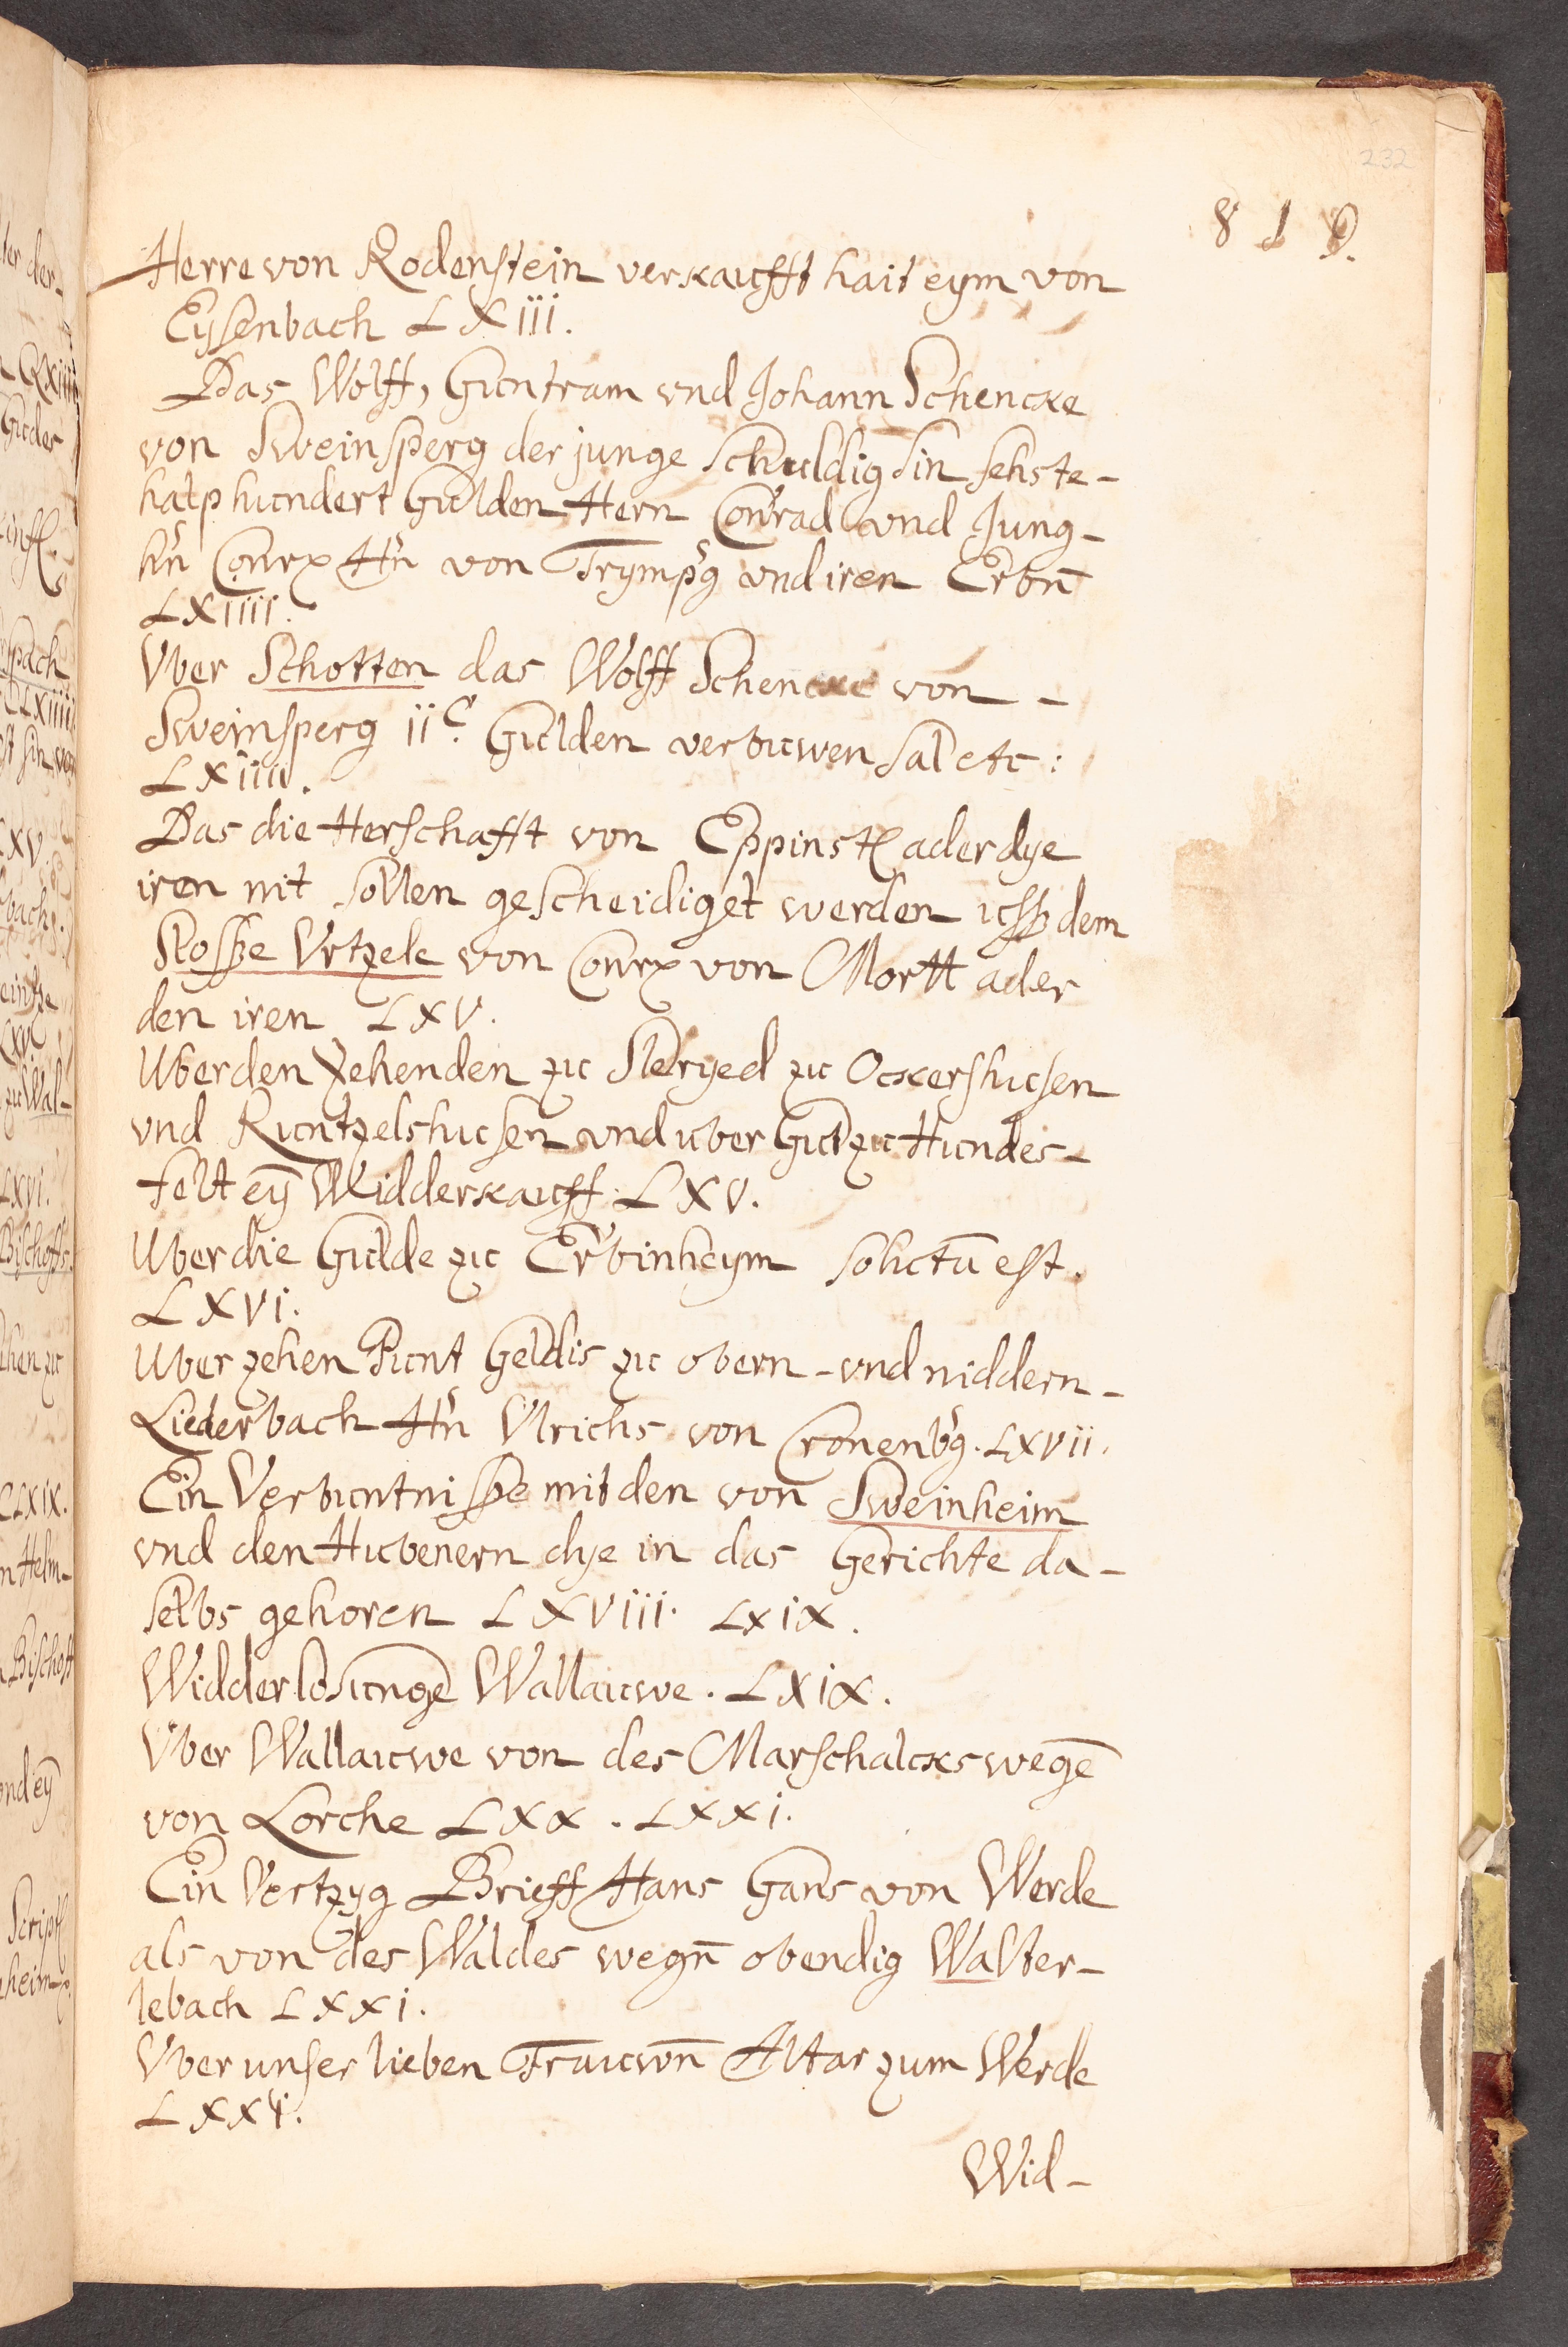 232
8 1 9.
Herre von Rodenstein verkaufft hait eym von
Eysenbach LXiii.
Das Wolff, Guntram vnd Johann Schencke
von Sweinsperg der junge schuldig sin sehste-
halphundert Gulden Hern Conrad vnd Jung-
hn̄ Conrx Hn̄ von Trympg̛ vnd iren Erbn̄
LXIIII.
Vber Schotten das Wolff Schencke von -
Sweinsperg iiᶜ. Gulden verbuwen sal etc:
LXiiii.
Das die Herschafft von Eppinst ader dye
iren nit sollen gescheidiget werden uſß dem
Sloſße Vrtzele von Conrx von Mortt ader
den iren LXV.
Uber den Zehenden zu Steryed zu Ockershusen
vnd Runtzelshusen vnd uber Gut zu Hundes-
felt eȳ Widderkauff LXV.
Uber die Gulde zu Erbinheym solutū est.
LXVI.
Uber zehen Punt Geldis zu obern- vnd niddern-
Liederbach Hn̄ Vlrichs von Cronenbg̛. LXVII.
Ein Verbuntniſße mit den von Sweinheim
vnd den Hubenern dye in das Gerichte da-
selbs gehoren LXVIII. LXIX.
Widderlosunge Wallauwe. LXIX.
Vber Wallauwe von des Marschalcks wegē
von Lorche LXX. LXXI.
Ein Vertzyg Brieff Hans Gans von Werde
als von des Waldes wegn̄ obendig Walter-
lebach LXXI.
Vber unser lieben Frauwn̄ Altar zum Werde
LXXI.
Wid-